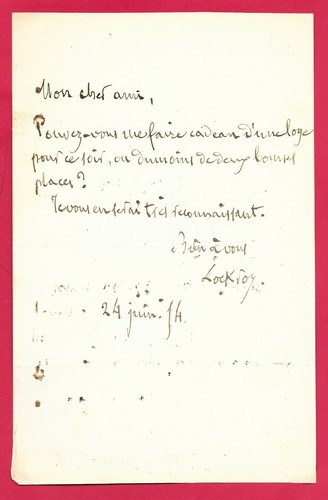 Mon cher ami,
Pouvez-vous me faire cadeau d'une loge
pour ce soir, ou du moins de deux bonnes
places ?
Je vous en serai très reconnaissant.
Bien à vous
Lockroy.
24 juin 74.